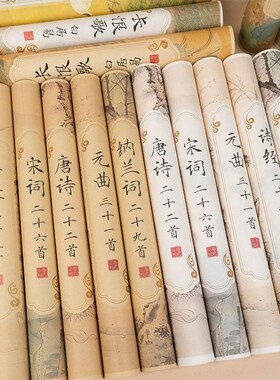 长恨歌
白居易
长恨歌
宋词
二十六首
唐诗
二十二首
元曲
三十一首
纳兰词
二十九首
唐诗
二十二首
宋词
二十六首
元曲
三十一首
诗经
二